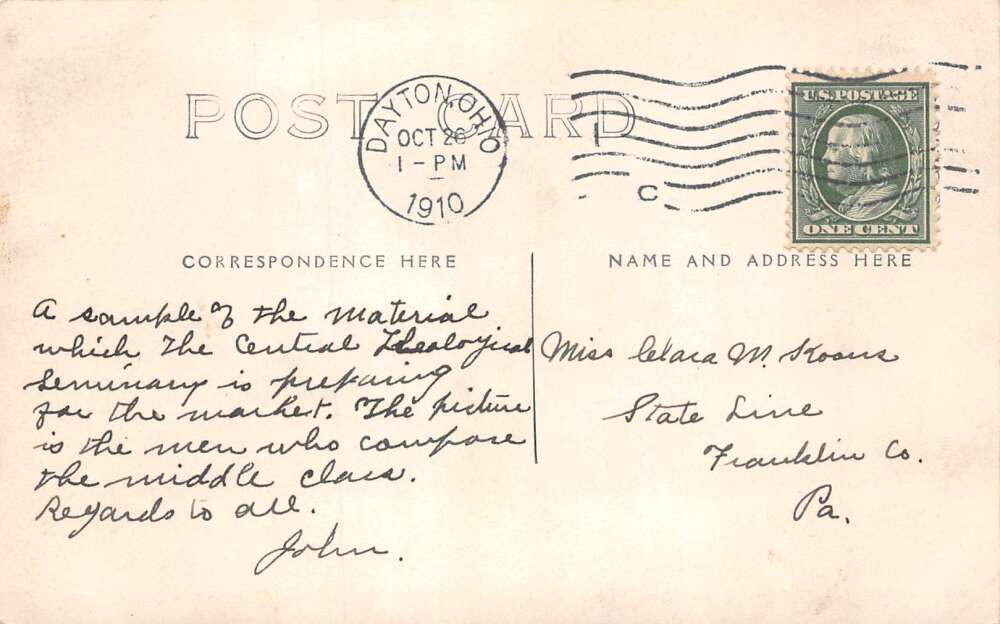 POST CARD
DAYTON, OHIO
OCT 26
1 - PM
1910
C
U.S. POSTAGE
ONE CENT
CORRESPONDENCE HERE
NAME AND ADDRESS HERE
A sample of the material
which the Central Theological
Seminary is preparing
for the market. The picture
is the men who compose
the middle class.
Regards to all.
John.
Miss Clara M. Koons
State Line
Franklin Co.
Pa.